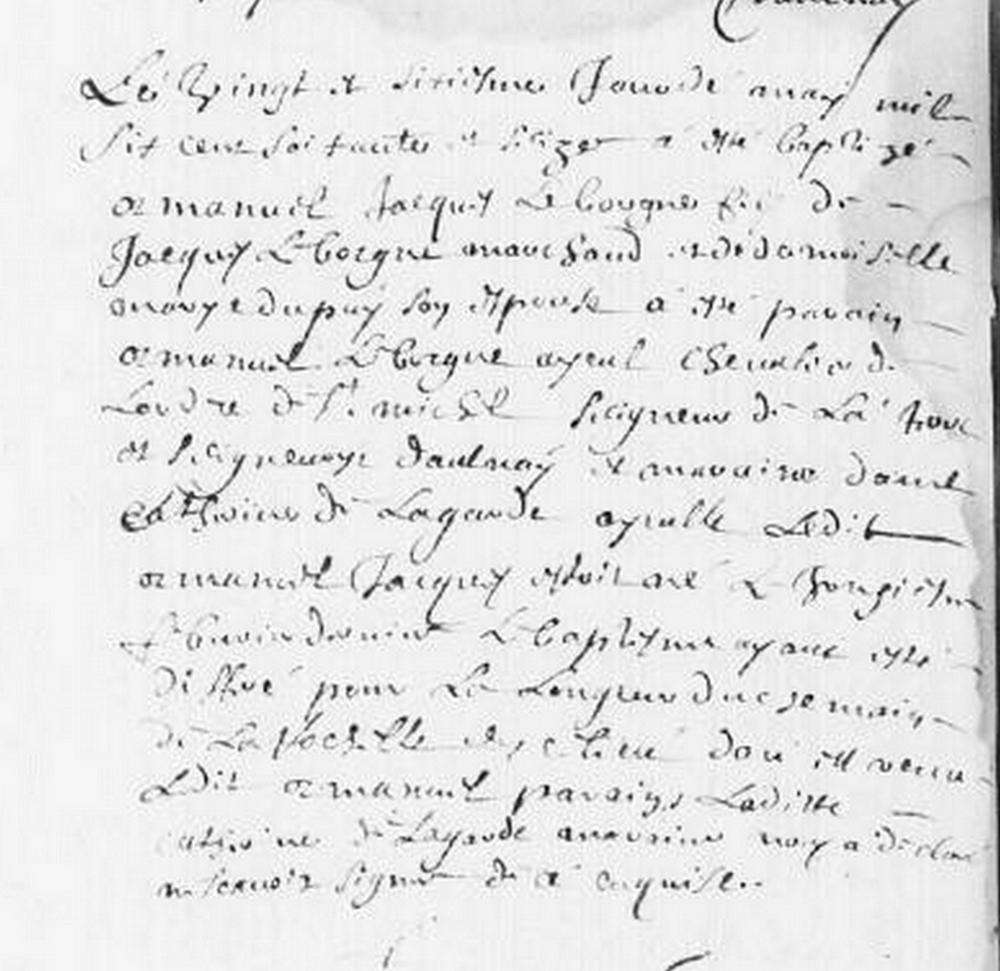 Le vingt et sixiesme Jour de may mil
six cent soixante et seize a esté baptizé
emanuel Jacques Leborgne fils de
Jacques Leborgne marchand et de damoiselle
marye dupuy son espouse a esté parain
emanuel Leborgne ayeul chevalier de
Lordre de St michel seigneur de La
et seigneurye daulnay et maraine dame
Catherine de Lagarde ayeulle Ledit
emanuel Jacques estoit né Le onziesme
febvrier dernier Le baptesme ayant esté
differé pour La Longueur du chemain
de La Rochelle en ce lieu dou est venu
Ledit emanuel parains Laditte
catherine de Lagarde maraine a declaré
ne scavoir signer de ce enquise